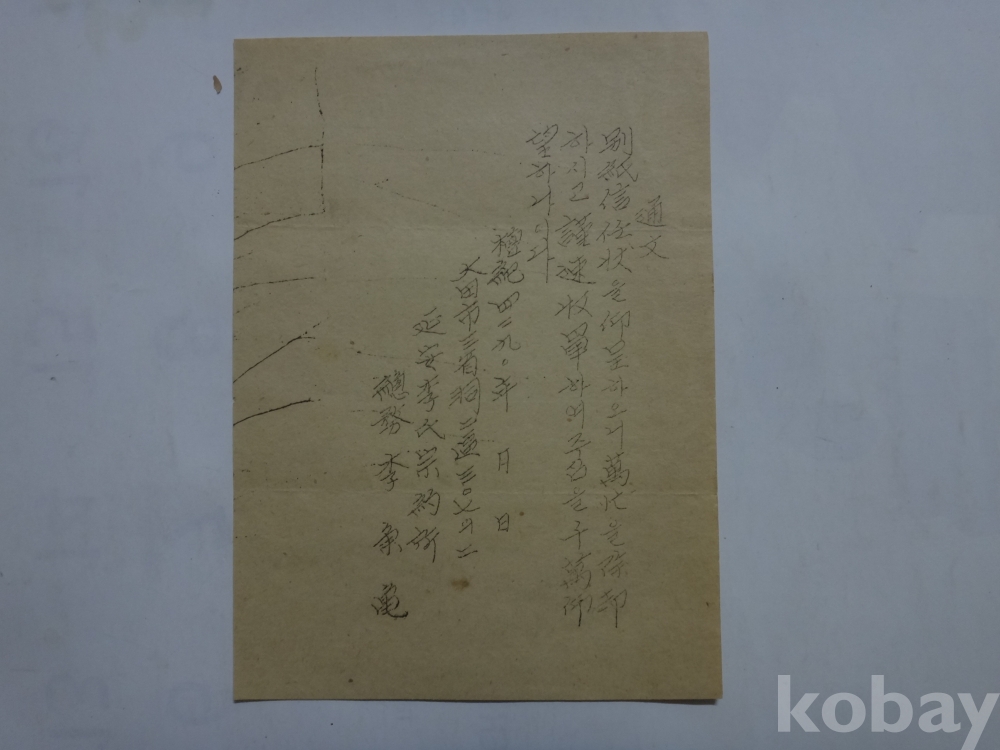 通文
別紙信任狀을仰呈하오니萬忙을除却
하시고謹速收單하여주심을千萬仰
望하나이다
檀紀四二九〇年 月 日
大田市三省洞二區三〇七의二
延安李氏宗約所
總務 李 龜
kobay